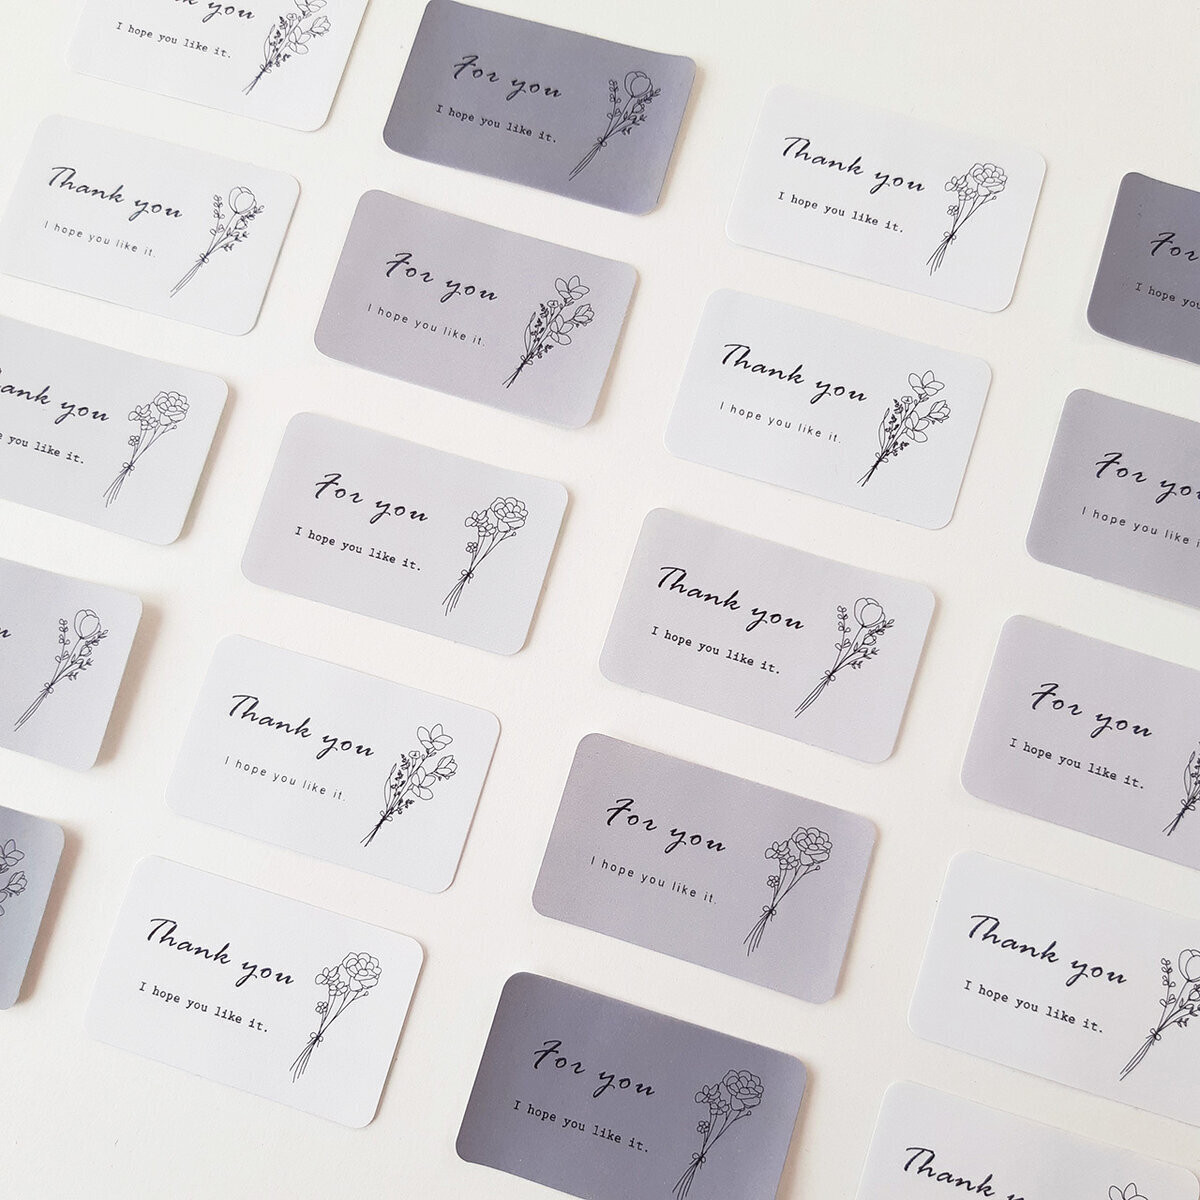 you
I hope you like it.
For you
I hope you like it.
Thank you
I hope you like it.
For
I hope you
Thank you
I hope you like it.
For you
I hope you like it.
Thank you
I hope you like it.
For you
I hope you like
Thank you
you like it.
For you
I hope you like it.
Thank you
I hope you like it.
For you
I hope you like it.
Thank you
I hope you like it.
For you
I hope you like it.
Thank you
I hope you like it.
Thank you
I hope you like it.
For you
I hope you like it.
Thank you